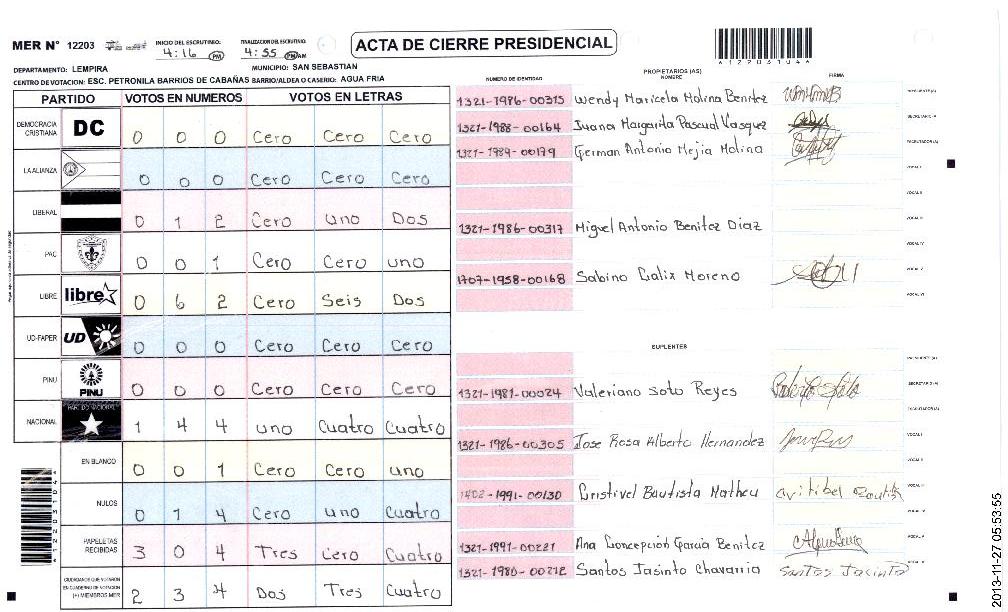 ACTA DE CIERRE PRESIDENCIAL
MER Nº 12203
INICIO DEL ESCRUTINEO: 4:16 PM
FINALIZACION DEL ESCRUTINIO: 4:55 PM AM
A122031044
DEPARTAMENTO: LEMPIRA MUNICIPIO: SAN SEBASTIAN
CENTRO DE VOTACION: ESC. PETRONILA BARRIOS DE CABAÑAS BARRIO/ALDEA O CASERIO: AGUA FRIA
PARTIDO VOTOS EN NUMEROS VOTOS EN LETRAS
DEMOCRACIA CRISTIANA DC 0 0 0 Cero Cero Cero
LA ALIANZA 0 0 0 Cero Cero Cero
LIBERAL 0 1 2 Cero uno Dos
PAC 0 0 1 Cero Cero uno
LIBRE libre 0 6 2 Cero Seis Dos
UD-FAPER UD 0 0 0 Cero Cero Cero
PINU PINU 0 0 0 Cero Cero Cero
NACIONAL PARTIDO NACIONAL 1 4 4 uno Cuatro Cuatro
EN BLANCO 0 0 1 Cero Cero uno
NULOS 0 1 4 Cero uno Cuatro
PAPELETAS RECIBIDAS 3 0 4 Tres Cero Cuatro
CIUDADANOS QUE VOTARON EN CUADERNO DE VOTACION (+) MIEMBROS MER 2 3 4 Dos Tres Cuatro
NUMERO DE IDENTIDAD PROPIETARIOS (AS) NOMBRE FIRMA
1321-1986-00315 Wendy Maricela Molina Benitez PRESIDENTE (A)
1321-1988-00164 Juana Margarita Pascual Vasquez SECRETARIO-A
1321-1989-00179 German Antonio Mejia Molina ESCRUTADOR (A)
VOCAL I
VOCAL II
1321-1986-00317 Miguel Antonio Benitez Diaz VOCAL III
VOCAL IV
1707-1958-00168 Sabino Calix Moreno VOCAL V
VOCAL VI
SUPLENTES
PRESIDENTE (A)
1321-1981-00024 Valeriano Soto Reyes SECRETARIO (A)
ESCRUTADOR (A)
1321-1986-00305 Jose Rosa Alberto Hernandez VOCAL I
VOCAL II
1402-1991-00130 Cristivel Bautista Matheu VOCAL III
VOCAL IV
1321-1991-00221 Ana Concepción Garcia Benitez VOCAL V
1321-1980-00212 Santos Jasinto Chavarria Santos Jacinto VOCAL VI
2013-11-27 05:53:55